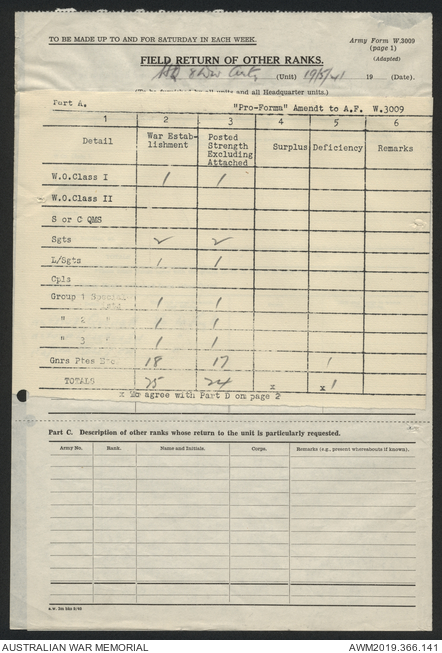 TO BE MADE UP TO AND FOR SATURDAY IN EACH WEEK.
Army Form W.3009
(page 1)
(Adapted)
FIELD RETURN OF OTHER RANKS.
HQ 8 Div Arty (Unit) 19/5/41 19 (Date).
(To be furnished by all units and all Headquarter units.)
Part A. "Pro-Forma" Amendt to A.F. W.3009
1 2 3 4 5 6
Detail War Estab-lishment Posted Strength Excluding Attached Surplus Deficiency Remarks
W.O.Class I 1 1
W.O.Class II
S or C QMS
Sgts 2 2
L/Sgts 1 1
Cpls
Group 1 1 1
" 2 " 1 1
" 3 " 1 1
Gnrs Ptes 18 17 1
TOTALS 25 24 x x 1
x agree with Part D on page 2
Part C. Description of other ranks whose return to the unit is particularly requested.
Army No. Rank. Name and Initials. Corps. Remarks (e.g., present whereabouts if known).
AUSTRALIAN WAR MEMORIAL AWM2019.366.141